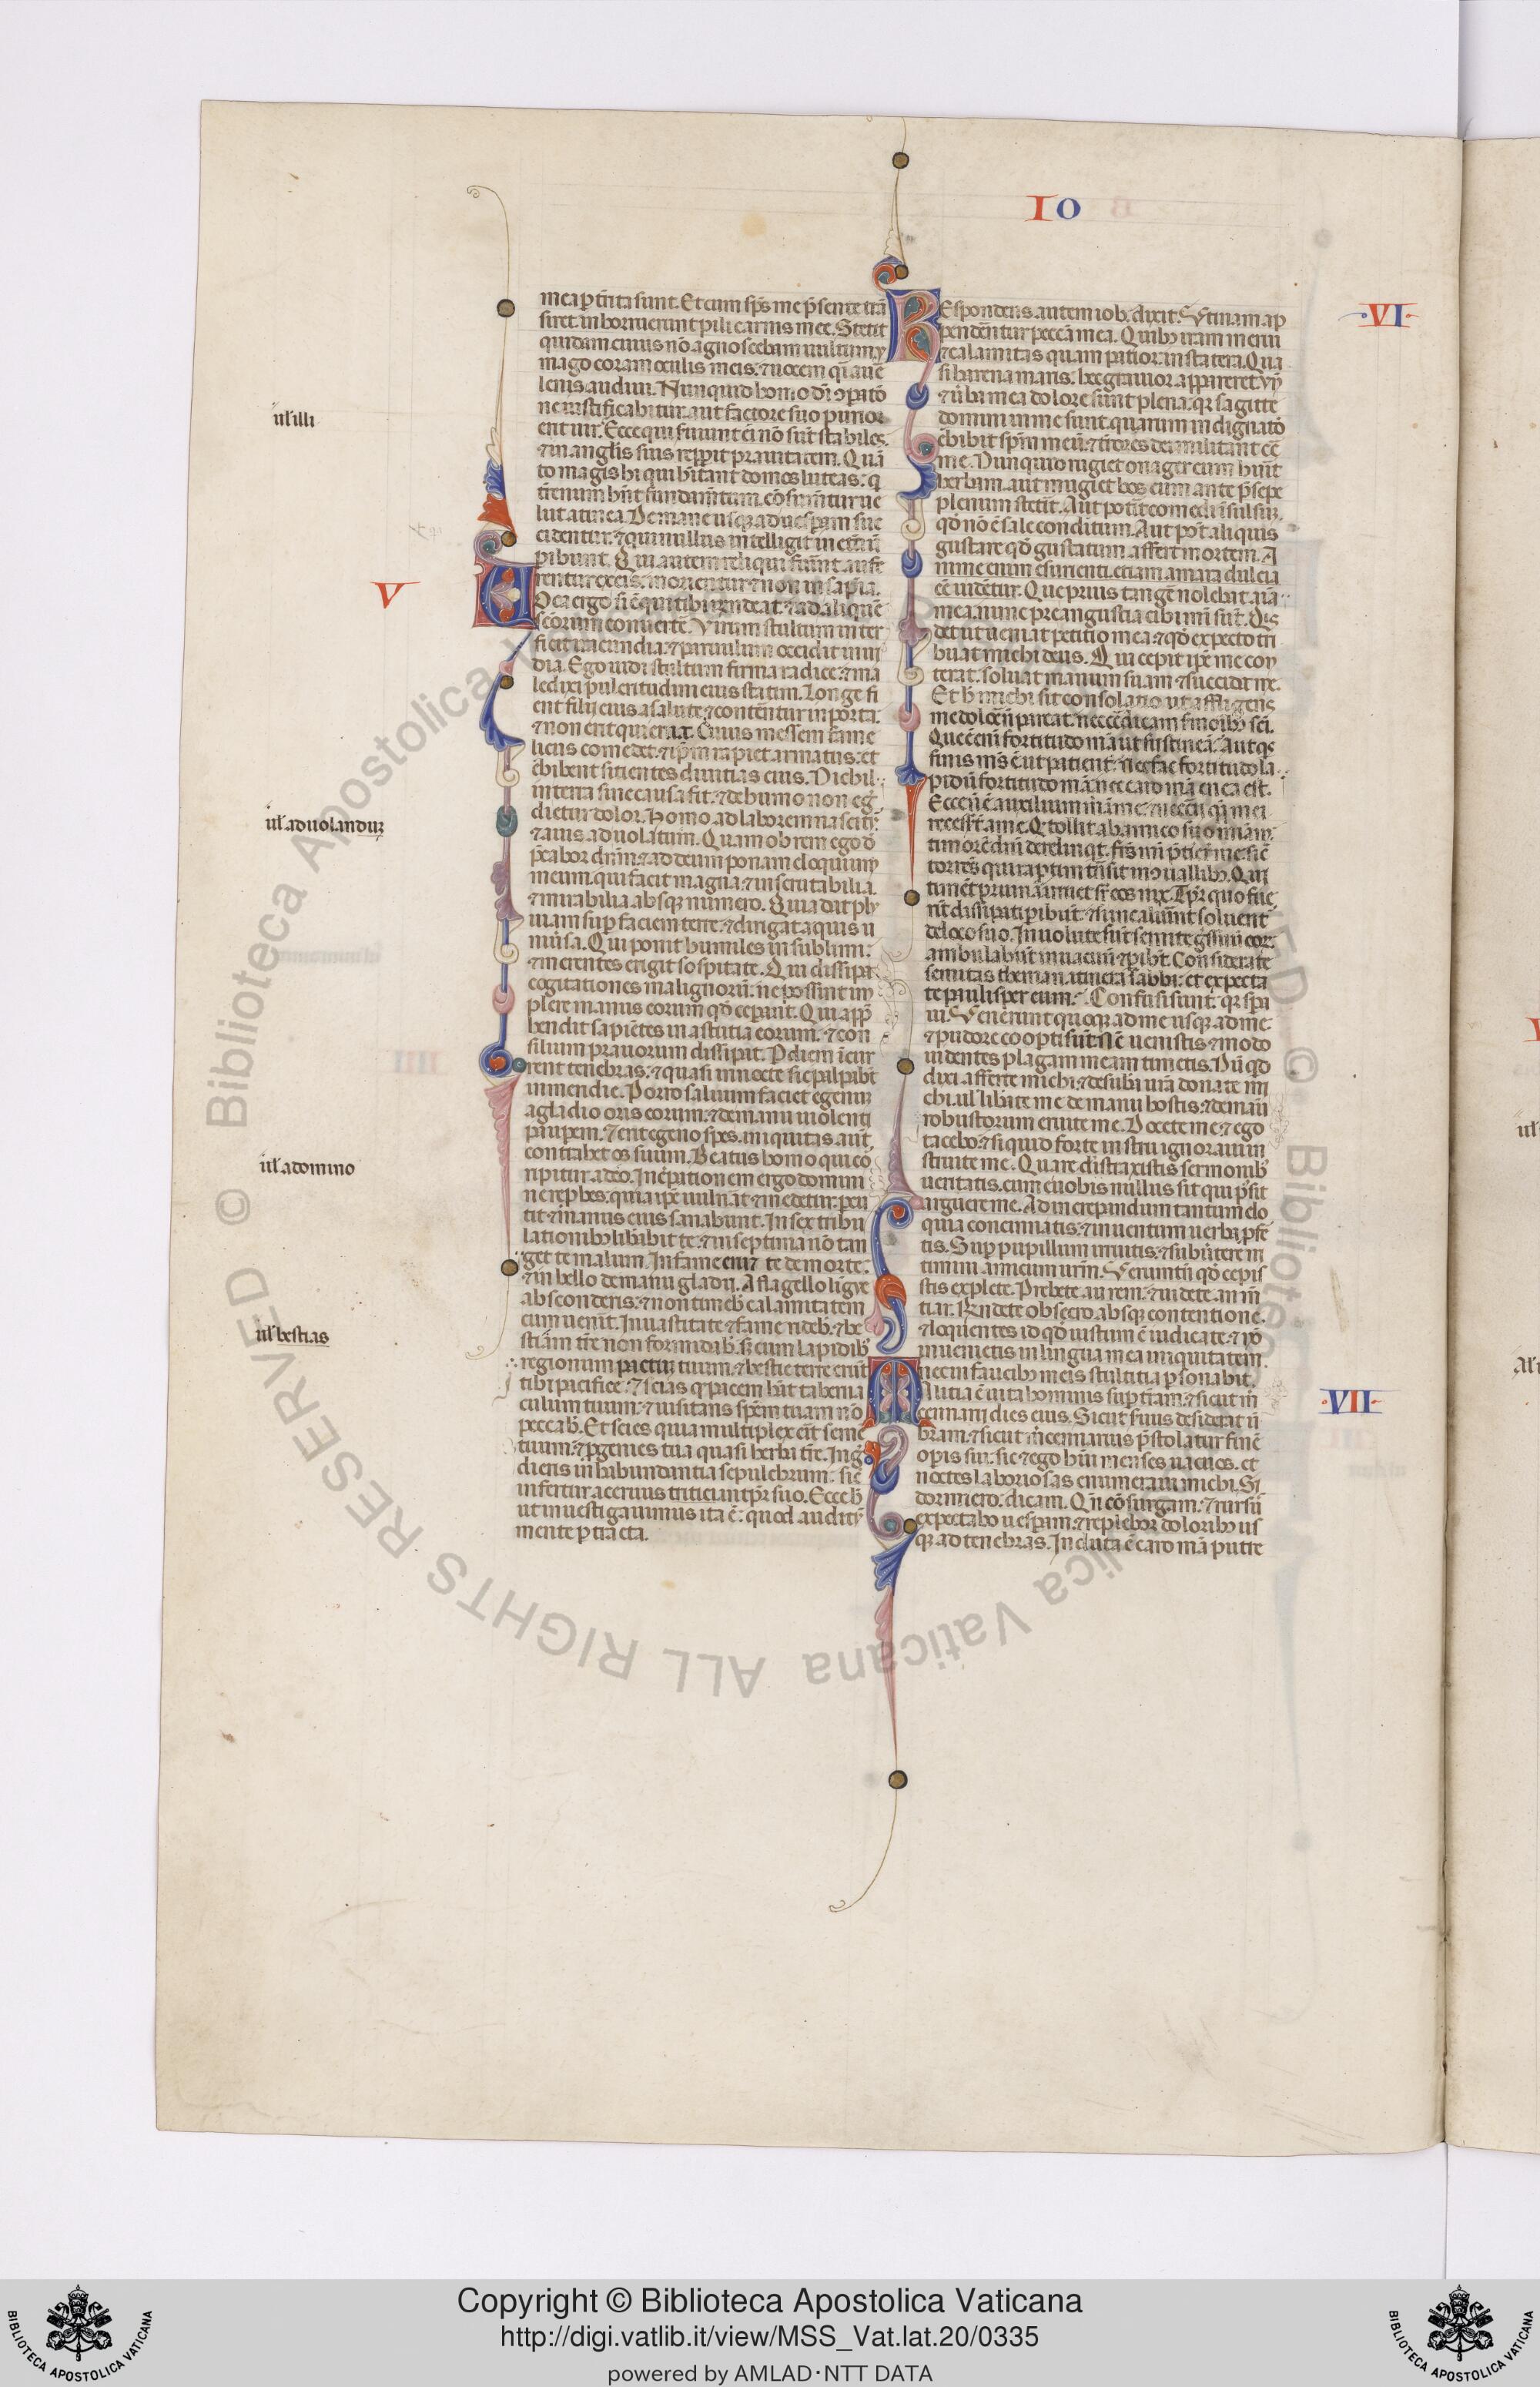 IO
mea ꝑt̃rita sunt. Et cum sp̃s me p̃sente trã
siret. inhorruerunt pili carnis mee. Stetit
quidam cuius nõ agnoscebam uultum. y
mago coram oculis meis. ⁊ uocem q̃i aur̃e
lenis audiui. Nunquid homo dĩ ↄpatõ
ne iustificabitur. aut factore suo purior
erit uir. Ecce qui ſuiunt ei nõ sũt stabiles.
⁊ in anglis suis repperit prauitatem. Quã
to magis hi qui hĩtant domos luteas. q̃
t̃renum hñt fundam̃tum. cõsum̃tur ue
lut a tinea. De mane usqꝫ ad uesꝑam suc
cidentur. ⁊ quia nullus intelligit in et̃nũ
ꝑibunt. Qui autem reliqui fuer̃nt aufe
rentur ex eis. morientur ⁊ non in sapĩa.
V
Voca ergo si ẽ qui tibi rndeat. ⁊ ad aliquẽ
sc̃orum conuerte. Virum stultum inter
ficit iracundia. ⁊ paruulum occidit inui
dia. Ego uidi stultum firma radice. ⁊ ma
ledixi pulcritudini eius statim. Longe fi
ent filij eius a salute. ⁊ conter̃ntur in porta.
⁊ non erit qui eruat. Cuius messem fame
licus comedet. ⁊ ip̃m rapiet armatus. et
ebibent sitientes diuitias eius. Nichil
in terra sine causa fit. ⁊ de humo non eg̃
dietur dolor. Homo ad laborem nascit̃.
⁊ auis ad uolatum. Quam ob rem ego d̃
p̃cabor dñm. ⁊ ad deum ponam eloquium
meum. qui facit magna. ⁊ inscrutabilia.
⁊ mirabilia absqꝫ numero. Qui a dat plu
uiam suꝑ faciem terre. ⁊ dirigat aquis u
niũsa. Qui ponit humiles in sublimi.
⁊ merentes erigit sospitate. Qui dissipat
cogitationes malignorũ. ne possint im
plere manus eorum qd̃ ceperunt. Qui app̃
hendit sapiẽtes in astutia eorum. ⁊ con
silium prauorum dissipat. P diem ĩcur
rent tenebras. ⁊ quasi in nocte sic palpab̃t
in meridie. Porro saluum faciet egenum
a gladio oris eorum. ⁊ de manu uiolenti
pauꝑem. ⁊ erit egeno spes. iniquitas aut̃
contrahet os suum. Beatus homo qui co
ripitur a deo. Increpationem ergo domini
ne reprobes. quia ip̃e uulnerat ⁊ medetur. percu
tit. ⁊ manus eius sanabunt. In sex tribu
lationibꝫ liberabit te. ⁊ in septima nõ tan
get te malum. In fame eruet te de morte.
⁊ in bello de manu gladii. A flagello ligue
absconderis. ⁊ non timeb̃ calamitatem
cum uen̄it. In uastitate ⁊ fame rideb̃. ⁊ be
stiam t̃re non formidab̃. Sꝫ cum lapidib̃
regionum pactum tuum. ⁊ bestie terre erũt
tibi pacifice. ⁊ scias qꝫ pacem h̃at taberna
culum tuum. ⁊ uisitans sp̃em tuam nõ
peccab̃. Et scies quia multiplex erit seme
tuum. ⁊ ꝓgenies tua quasi herba tr̃e. Ing̃
diens in habundantia sepulchrum. sic̃
infertur aceruus tritici in tp̃r suo. Ecce h
ut inuestigauimus ita ẽ. quod auditũ
mente ꝑtracta.
ul' illi
ul' ad uolandum
ul' a domino
ul' bestias
VI
REspondens autem iob. dixit. Vtinam ap
penderentur peccã mea. Quibꝫ iram merui
⁊ calamitas quam patior in statera. Qua
si harena maris. hec grauior appareret. Vñ
⁊ ũba mea dolore sunt plena. qꝫ sagitte
domini in me sunt. quarum indignatõ
ebibit sp̃m meũ. ⁊ t̃rores dei militant cõt̃
me. Nunquid rugiet onager cum hũit
herbam. aut mugiet bos cum ante p̃sepe
plenum stet̃it. Aut pot̃it comedi ĩsulsũ.
qd̃ nõ ẽ sale conditum. Aut pot̃ aliquis
gustare qd̃ gustatum affert mortem. A
nime enim esurienti. etiam amara dulcia
eẽ uidẽtur. Que prius tang̃e nolebat aĩa
mea. nunc pre angustia cibi mei sũt. Qis
det ut ueniat petitio mea. ⁊ qd̃ expecto tri
buat michi deus. Qui cepit ip̃e me con
terat. soluat manum suam ⁊ succidat me.
Et h̃ michi sit consolatio ut affligens
me dolore nõ parcat. nec ↄtradicam sermonibꝫ sc̃i.
Que ẽ enĩ fortitudo mã ut sustineã. Aut qis
finis m̃s ẽ ut patient̃. Nec fac fortitudo la
pidũ fortitudo mã. nec caro mã enea est.
Ecce nõ ẽ auxilium m̃ in me. ⁊ necc̃ii qꝫ mei
recesser̃t a me. Q tollit ab amico suo miam.
timorẽ dni derelinqt. frs mi p̃t̃ier̃t me sic̃
torrẽs qui raptim trãsit in ↄuallibꝫ. Qui
timet pruinam. irruet sr̃ eos nix. Tp̃r quo fue
rit dissipati ꝑibũt. ⁊ ut incaluer̃it soluent̃
de loco suo. Inuolute sũt semite g̃ssuũ eor̃.
ambulabũt in uacuũ ⁊ ꝑibũt. Considerate
semitas theman. itinera sabba. et expecta
te paulisper eum. Confusi sunt. qꝫ spera
ui. Venerunt quoqꝫ ad me usqꝫ ad me.
⁊ pudore cooperti sũt. Nũc uenistis. ⁊ modo
uidentes plagam meam timetis. Nũqd
dixi afferte michi. ⁊ de substantia ur̃a donate mi
chi. ul' liberate me de manu hostis. ⁊ de manũ
robustorum eruite me. Docete me ⁊ ego
tacebo. ⁊ si quid forte instru ignoraui in
struite me. Quare distraxistis sermonibꝫ
ueritatis. cum e uobis nullus sit qui possit
arguere me. Ad increpandum tantum elo
quia concinnatis. ⁊ in uentum uerba profer̃
tis. Suꝑ pupillum irruitis. ⁊ subũtere ni
timini amicum ur̃m. Veruntñ qd̃ cepis
tis explete. Prebete aurem. ⁊ uidete an m̃
tiar. Rñdete obsecro absqꝫ contentione.
⁊ loquentes id qd̃ iustum ẽ iudicate. ⁊ nõ
inuenietis in lingua mea iniquitatem.
nec in faucibꝫ meis stultitia ꝑsonabit.
VII
Militia ẽ uita hominis suꝑ tr̃am. ⁊ sicut m̃
cennarij dies eius. Sicut ſuus desiderat ũ
bram. ⁊ sicut m̃cennarius p̃stolatur finẽ
oꝑis sui. sic ⁊ ego hũi menses uacuos. et
noctes laboriosas enumeraui michi. Si
dormiero. dicam. Qñ cõsurgam. ⁊ rursũ
expectabo uesꝑam. ⁊ replebor doloribꝫ us
qꝫ ad tenebras. Induta ẽ caro mã putre
Copyright © Biblioteca Apostolica Vaticana
http://digi.vatlib.it/view/MSS_Vat.lat.20/0335
powered by AMLAD·NTT DATA
BIBLIOTECA APOSTOLICA VATICANA
BIBLIOTECA APOSTOLICA VATICANA